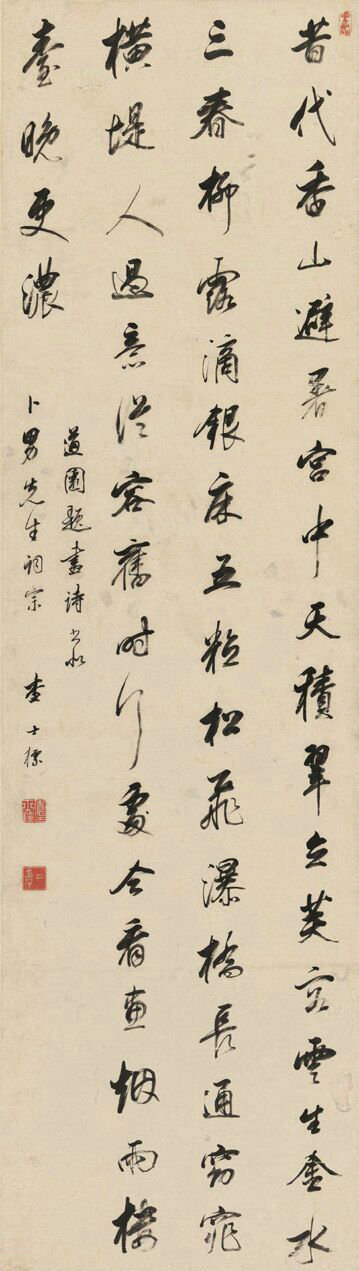 昔代香山避暑宮中天積翠立芙蓉雲生金水
三春柳露滴銀床五粒松飛瀑橋長通窈窕
橫堤人過意從容舊時行處今看畫烟雨樓
臺晚更濃
道園題畫詩書似
卜男先生詞宗 查士標